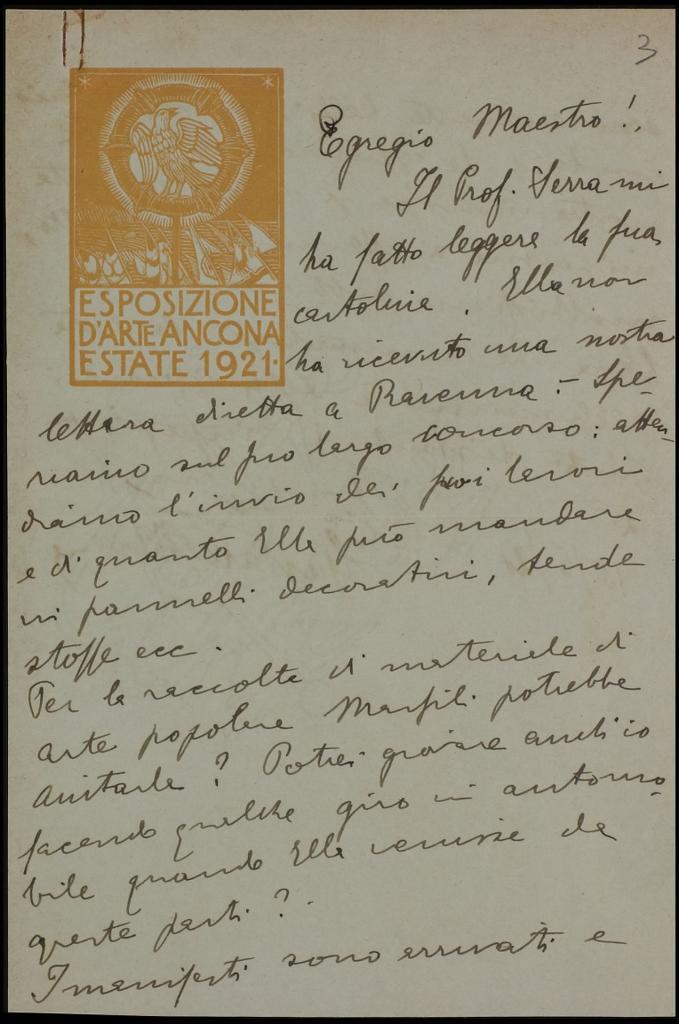 3
ESPOSIZIONE
D'ARTE ANCONA
ESTATE 1921.
Egregio Maestro!.
Il Prof. Serra mi
ha fatto leggere la sua
cartolina. Ella non
ha ricevuto una nostra
lettera diretta a Ravenna? - Spe-
riamo sul suo largo concorso: atten-
diamo l'invio dei suoi lavori
e di quanto Ella può mandare
in pannelli decorativi, tende
stoffe ecc.
Per la raccolta di materiale di
arte popolare Marfili potrebbe
aiutarla? Potrei giovare anch'io
facendo qualche giro in automo-
bile quando Ella venisse da
queste parti?
I manifesti sono arrivati e